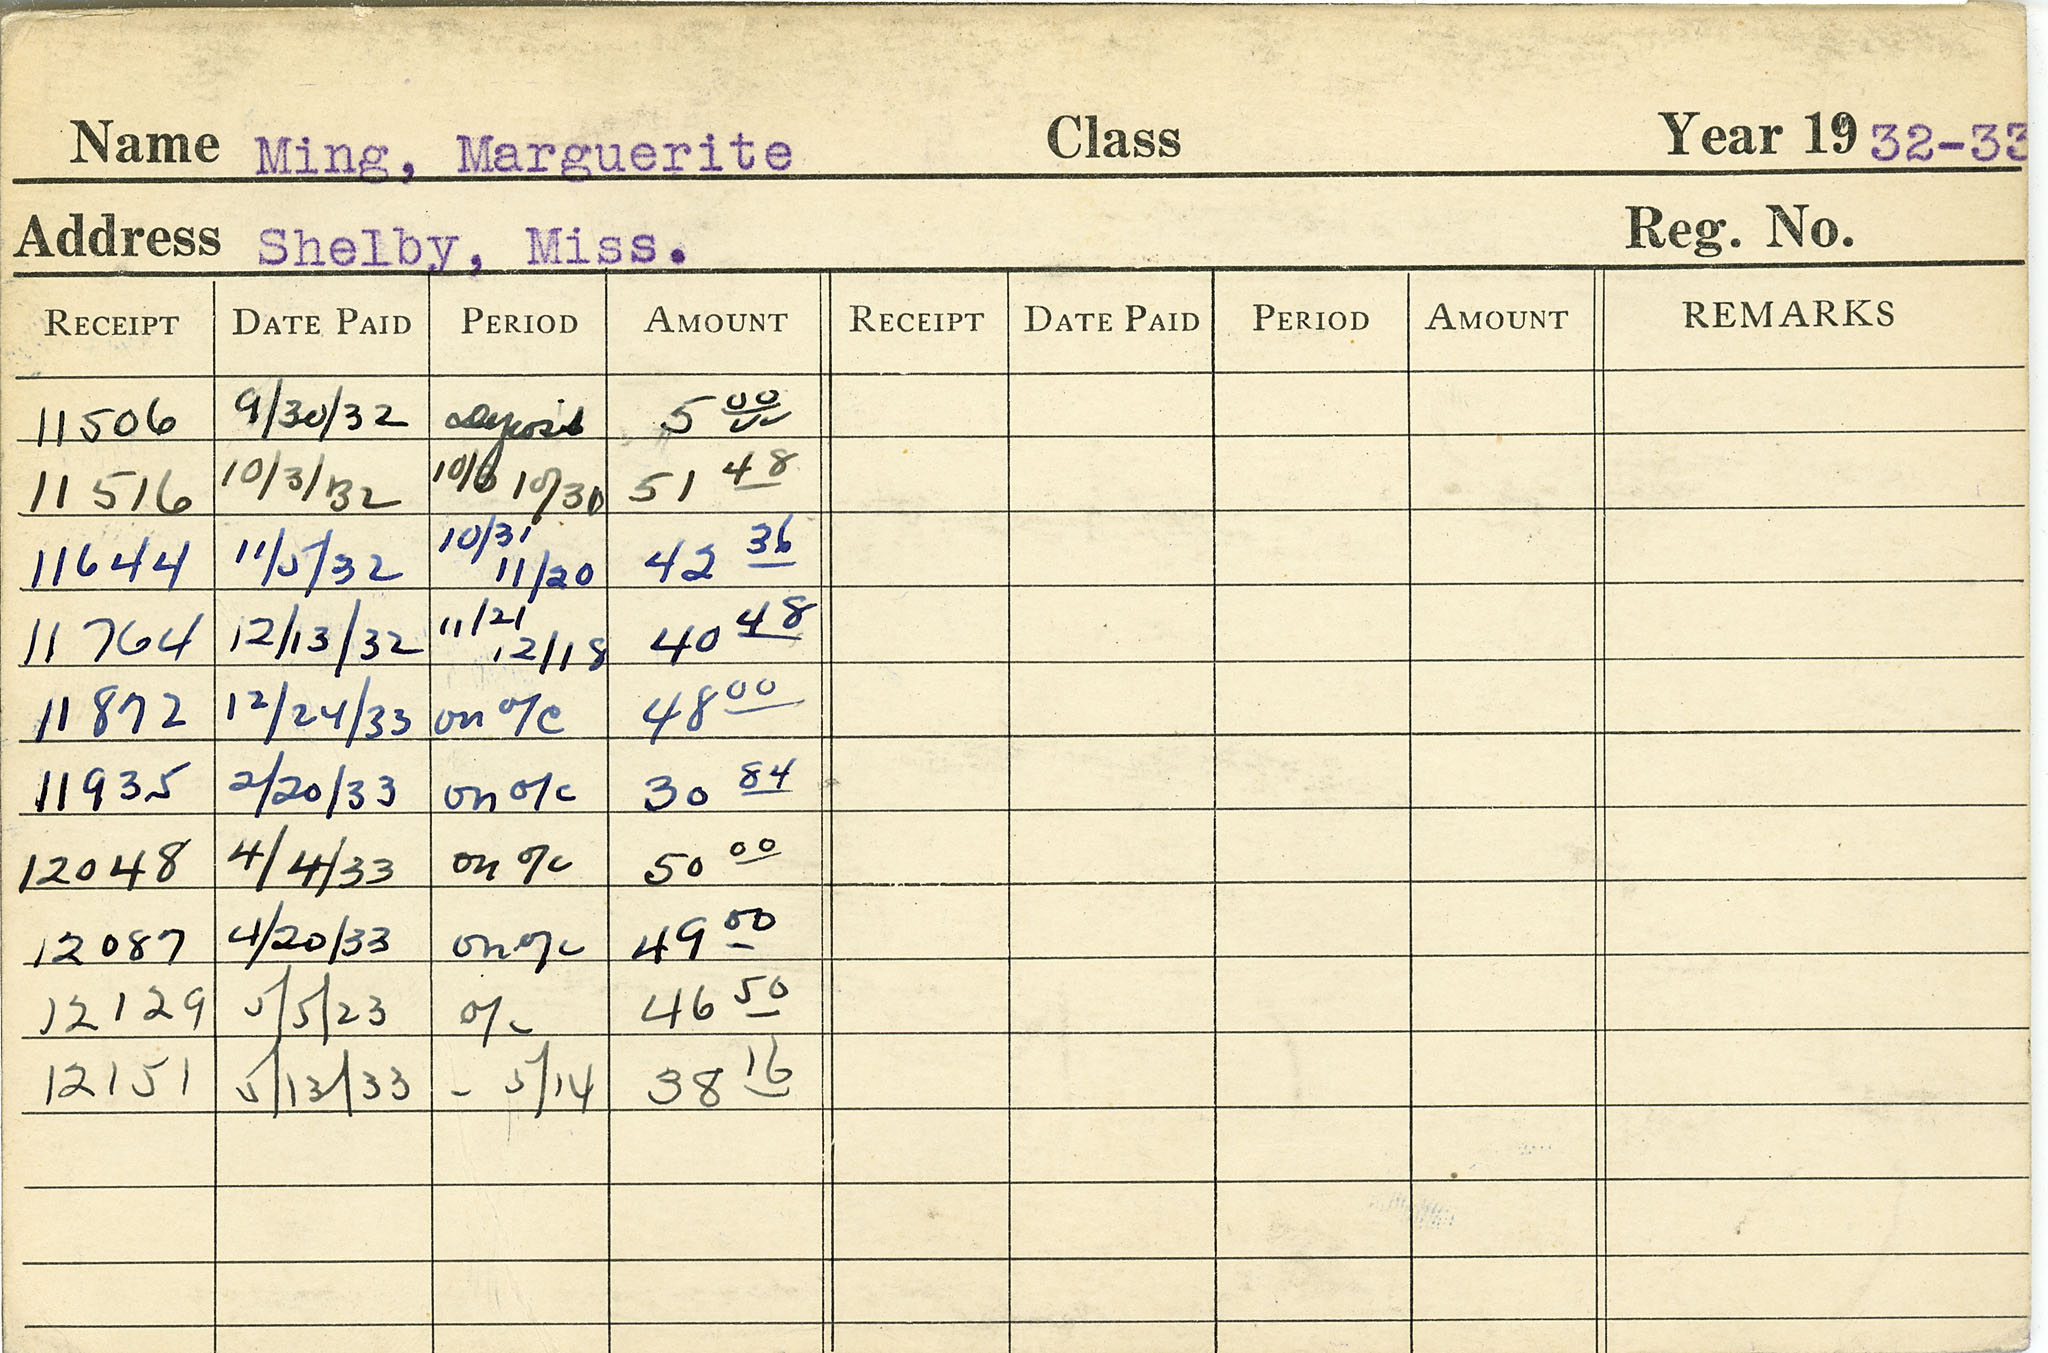 Name Ming, Marguerite Class Year 19 32-33
Address Shelby, Miss. Reg. No.
RECEIPT DATE PAID PERIOD AMOUNT RECEIPT DATE PAID PERIOD AMOUNT REMARKS
11506 9/30/32 Deposit 5 00
11516 10/3/32 10/6 10/30 51 48
11644 11/5/32 10/31 11/20 42 36
11764 12/13/32 11/21 12/18 40 48
11872 12/24/33 on o/c 48 00
11935 2/20/33 on o/c 30 84
12048 4/4/33 on o/c 50 00
12087 4/20/33 on o/c 49 00
12129 5/5/23 o/c 46 50
12151 5/13/33 - 5/14 38 16